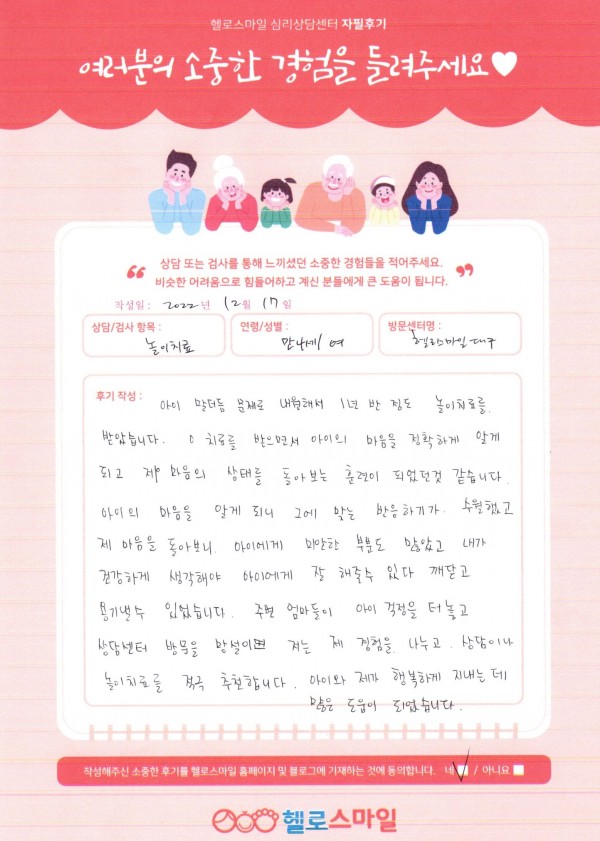 헬로스마일 심리상담센터 자필후기
여러분의 소중한 경험을 들려주세요
상담 또는 검사를 통해 느끼셨던 소중한 경험들을 적어주세요.
비슷한 어려움으로 힘들어하고 계신 분들에게 큰 도움이 됩니다.
작성일 : 2022년 12월 17일
상담/검사 항목 : 놀이치료
연령/성별 : 만4세/여
방문센터명 : 헬로스마일대구
후기 작성 :
아이 말더듬 문제로 내원해서 1년 반 정도 놀이치료를
받았습니다. 치료를 받으면서 아이의 마음을 정확하게 알게
되고 제 마음의 상태를 돌아보는 훈련이 되었던것 같습니다.
아이의 마음을 알게 되니 그에 맞는 반응하기가 수월했고
제 마음을 돌아보니 아이에게 미안한 부분도 많았고 내가
건강하게 생각해야 아이에게 잘 해줄수 있다 깨닫고
용기낼수 있었습니다. 주변 엄마들이 아이 걱정을 터놓고
상담센터 방문을 망설이면 저는 제 경험을 나누고 상담이나
놀이치료를 적극 추천합니다. 아이와 제가 행복하게 지내는데
많은 도움이 되었습니다.
작성해주신 소중한 후기를 헬로스마일 홈페이지 및 블로그에 기재하는 것에 동의합니다. 네 / 아니요
헬로스마일